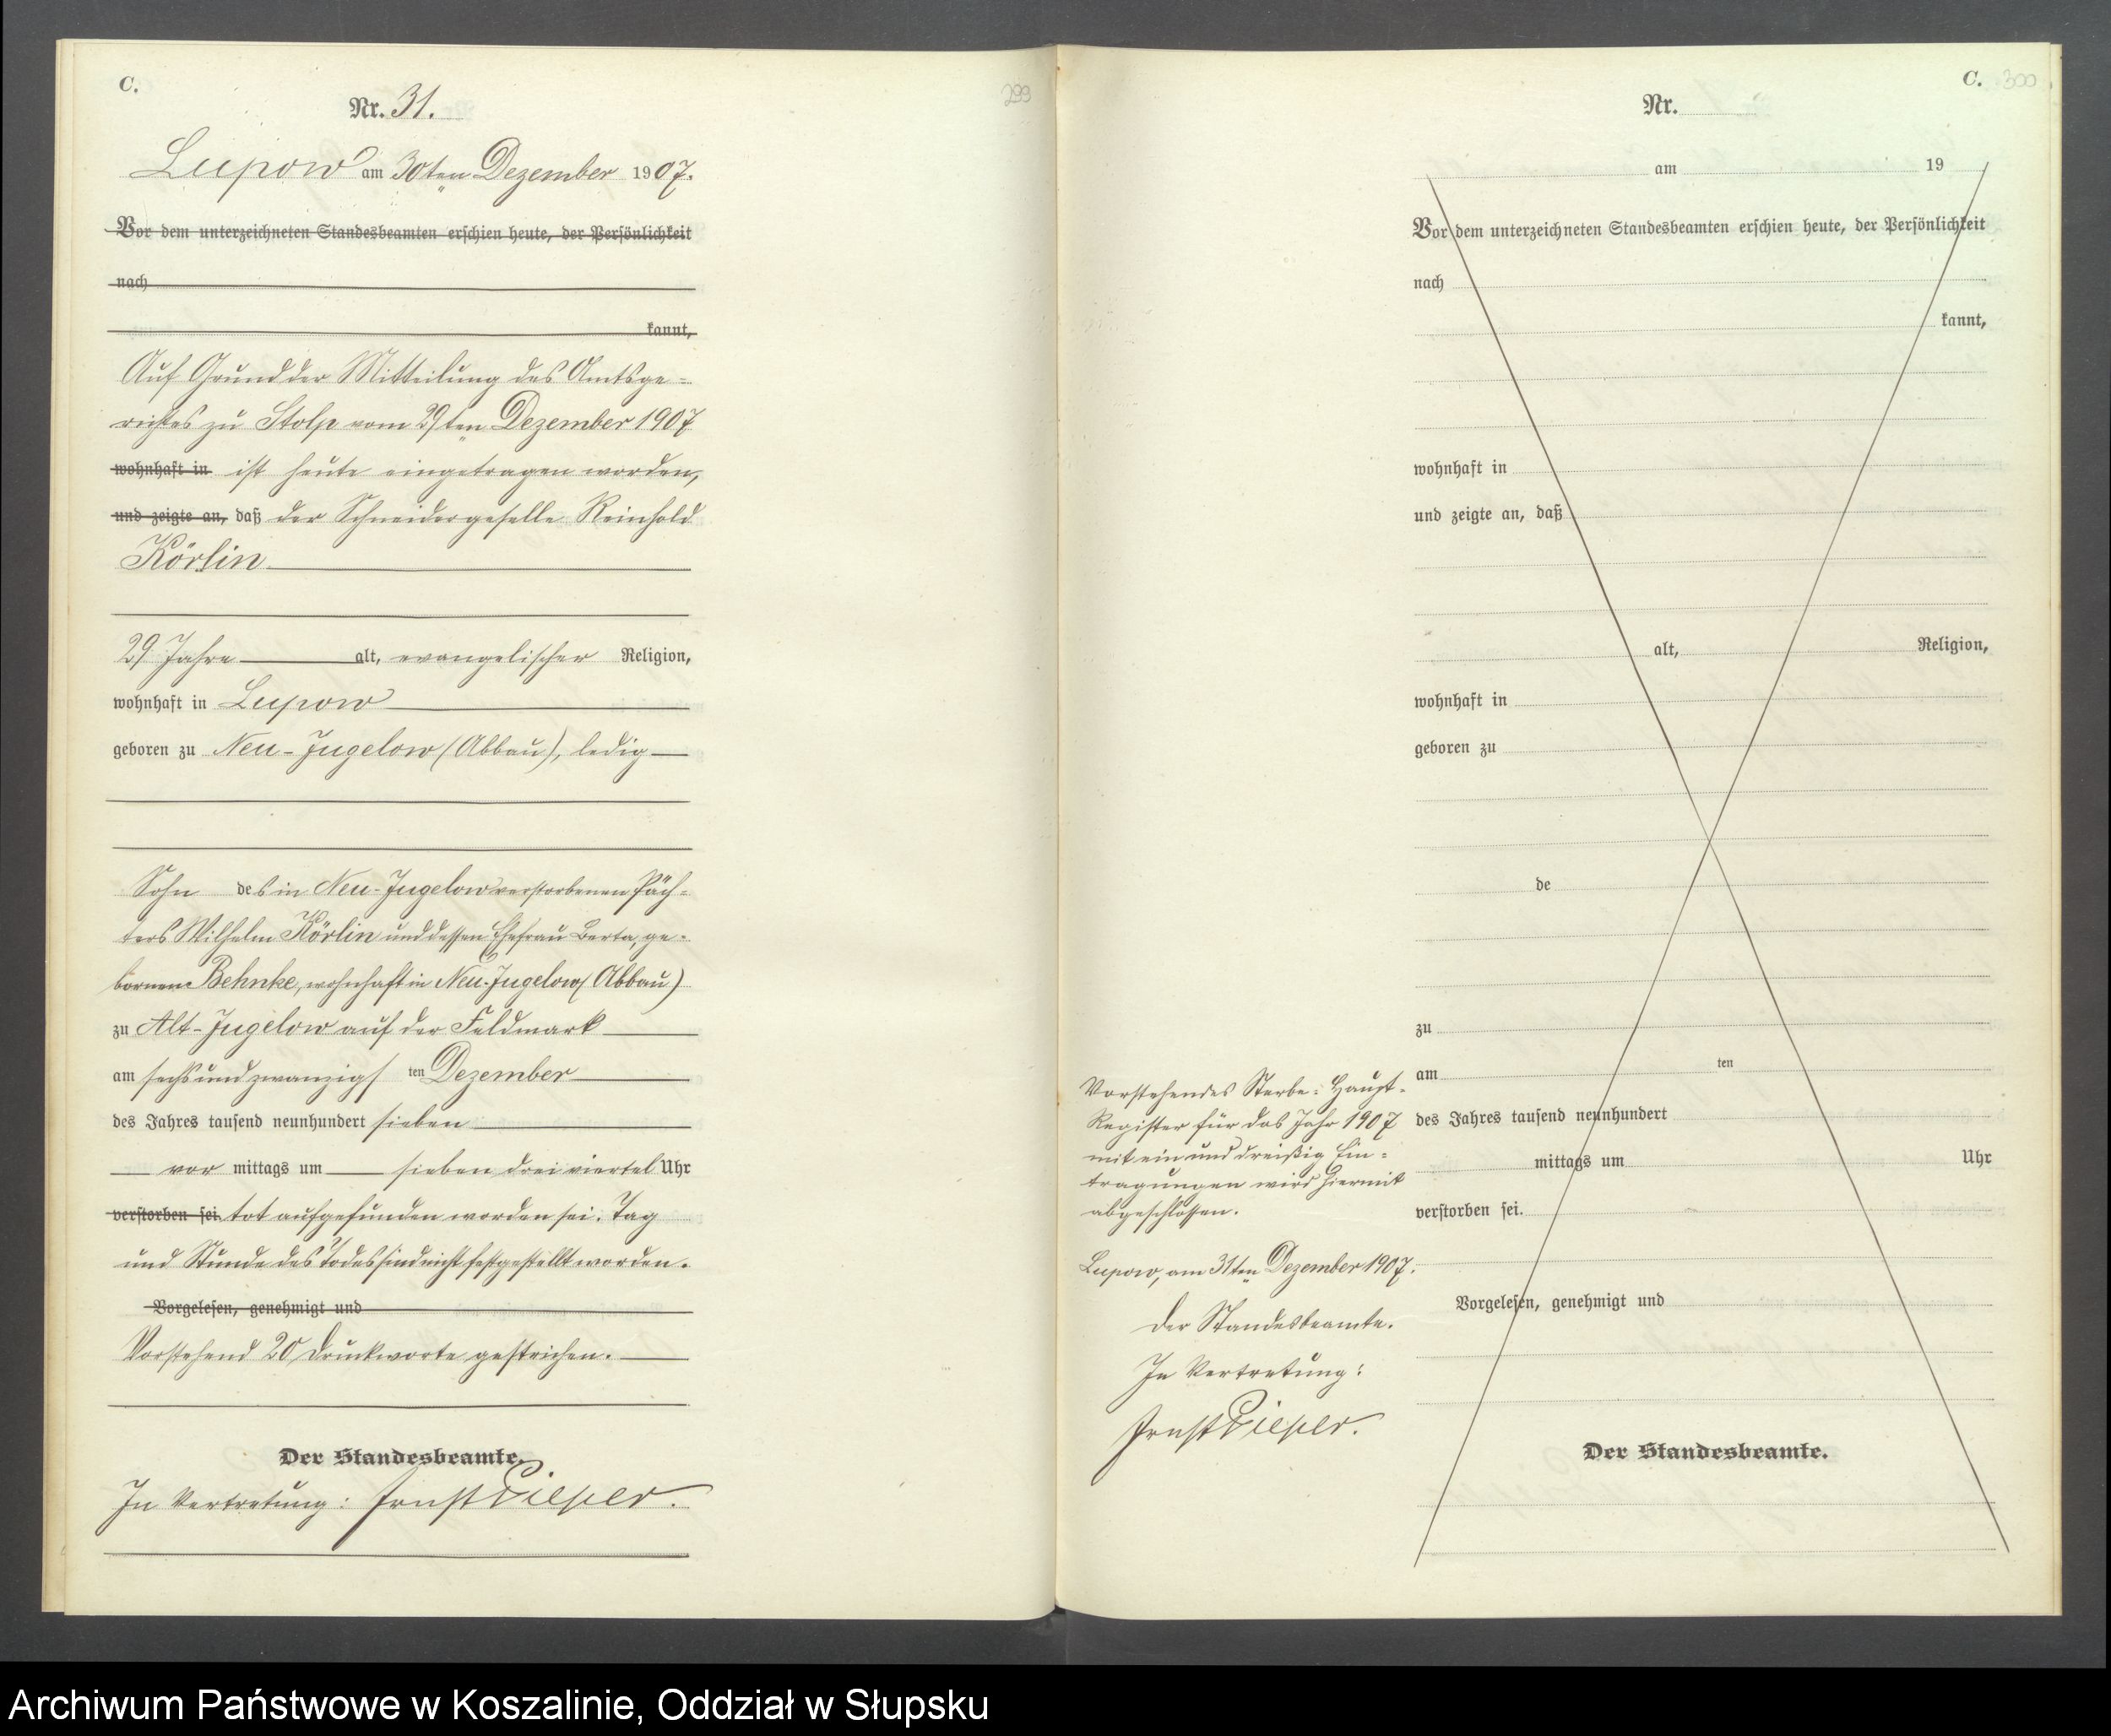 C.
Nr. 31.
299
Lupow am 30ten Dezember 1907.
Vor dem unterzeichneten Standesbeamten erschien heute, der Persönlichkeit
nach
kannt,
Auf Grund der Mitteilung des Amtsge-
richtes zu Stolp vom 29ten Dezember 1907
wohnhaft in ist heute eingetragen worden,
und zeigte an, daß der Schneidergeselle Reinhold
Körlin
29 Jahre alt, evangelischer Religion,
wohnhaft in Lupow
geboren zu Neu-Jugelow (Abbau), ledig
Sohn des in Neu-Jugelow verstorbenen Päch-
ters Wilhelm Körlin und dessen Ehefrau Berta, ge-
bornen Behnke, wohnhaft in Neu-Jugelow (Abbau)
zu Alt-Jugelow auf der Feldmark
am sechsundzwanzigsten Dezember
des Jahres tausend neunhundert sieben
vor mittags um sieben dreiviertel Uhr
verstorben sei tot aufgefunden worden sei. Tag
und Stunde des Todes sind nicht festgestellt worden.
Vorgelesen, genehmigt und
Vorstehend 20 Druckworte gestrichen.
Der Standesbeamte.
In Vertretung: Ernst Pieper.
C. 300
Nr.
am 19
Vor dem unterzeichneten Standesbeamten erschien heute, der Persönlichkeit
nach
kannt,
wohnhaft in
und zeigte an, daß
alt, Religion,
wohnhaft in
geboren zu
de
zu
am ten
des Jahres tausend neunhundert
mittags um Uhr
verstorben sei.
Vorgelesen, genehmigt und
Der Standesbeamte.
Vorstehendes Sterbe-Haupt-
Register für das Jahr 1907
mit ein und dreißig Ein-
tragungen wird hiermit
abgeschlossen.
Lupow, am 31ten Dezember 1907.
Der Standesbeamte.
In Vertretung:
Ernst Pieper.
Archiwum Państwowe w Koszalinie, Oddział w Słupsku